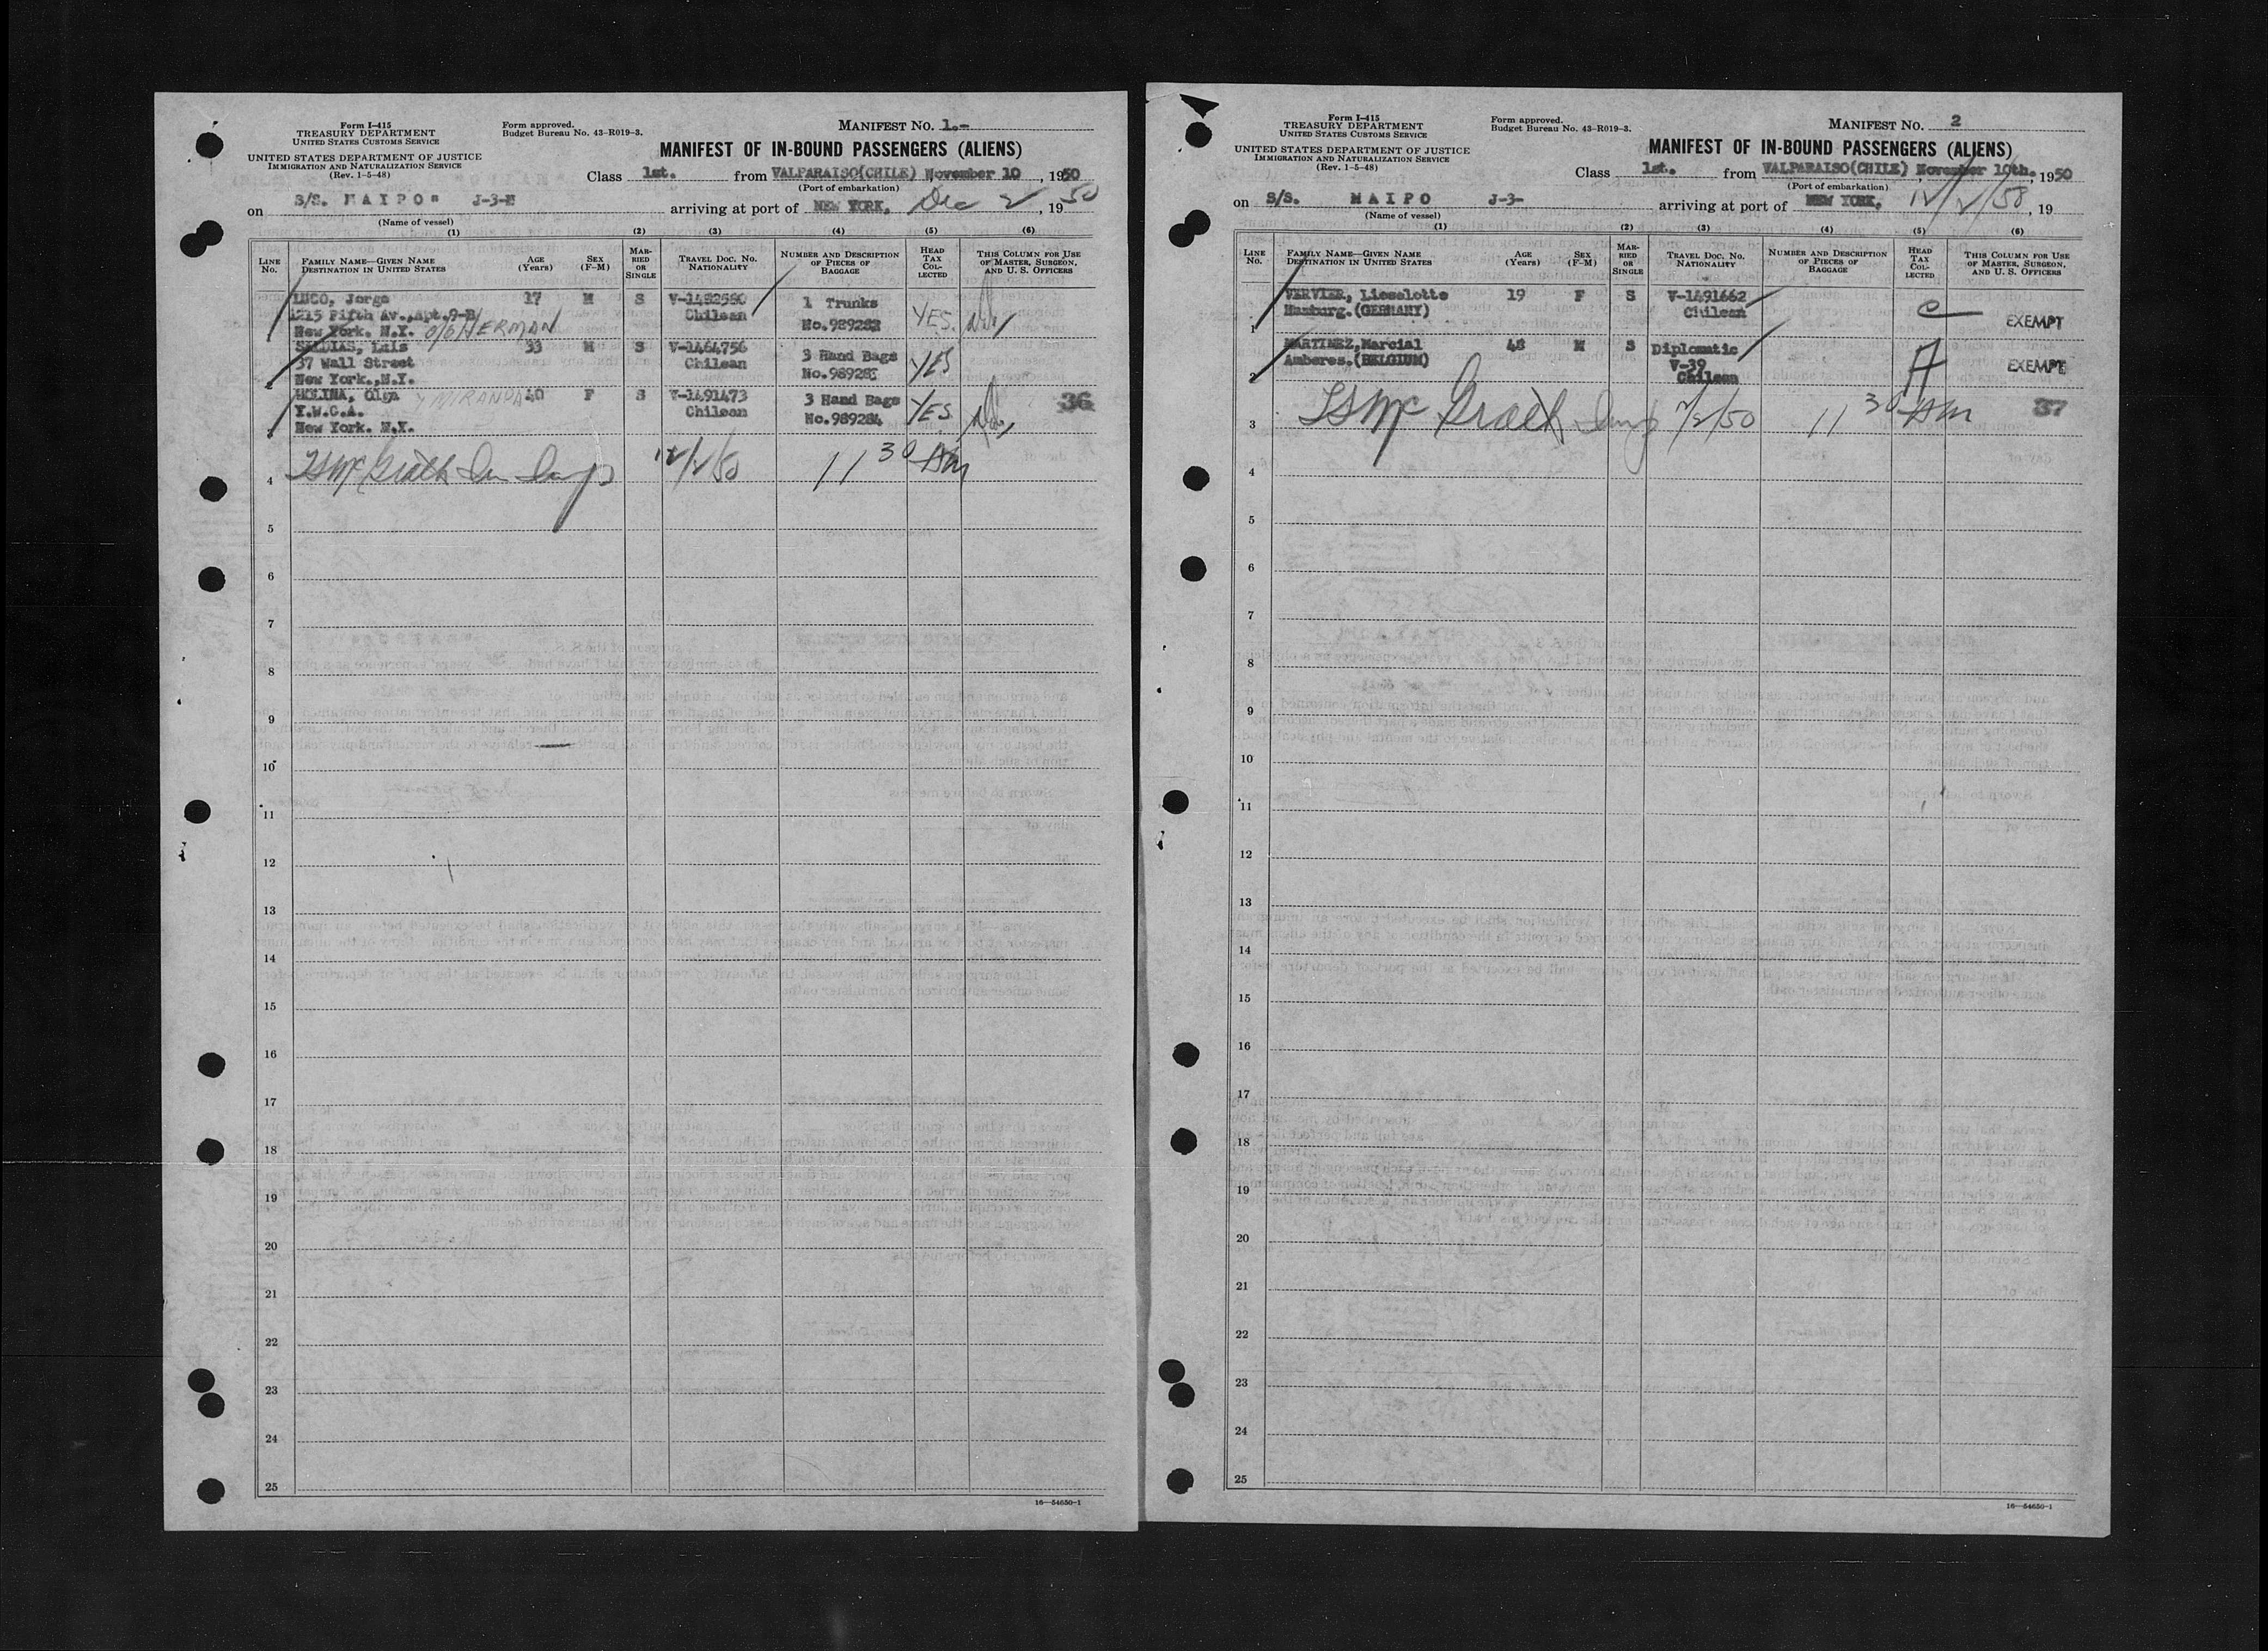 Form I-415
TREASURY DEPARTMENT
UNITED STATES CUSTOMS SERVICE
UNITED STATES DEPARTMENT OF JUSTICE
IMMIGRATION AND NATURALIZATION SERVICE
(Rev. 1-5-48)
Form approved.
Budget Bureau No. 43-R019-3.
MANIFEST No. 1.-
MANIFEST OF IN-BOUND PASSENGERS (ALIENS)
Class 1st. from VALPARAISO(CHILE) November 10, 1950
(Port of embarkation)
on S/S. MAIPO" J-3-N arriving at port of NEW YORK, Dec 2, 1950
(Name of vessel)
(1) (2) (3) (4) (5) (6)
LINE No. FAMILY NAME—GIVEN NAME DESTINATION IN UNITED STATES AGE (Years) SEX (F-M) MARRIED OR SINGLE TRAVEL DOC. NO. NATIONALITY NUMBER AND DESCRIPTION OF PIECES OF BAGGAGE HEAD TAX COLLECTED THIS COLUMN FOR USE OF MASTER, SURGEON, AND U. S. OFFICERS
LUCO, Jorge 17 M S 1 Trunks
1215 Fifth Av.,Apt.9-B Chilean YES
New York. N.Y. c/o HERMAN
1
SALDIAS, Luis 33 M S V-1464756 3 Hand Bags
37 Wall Street Chilean YES
New York.,N.Y.
2
MOLINA, Olga Y MIRANDA 40 F S V-1491473 3 Hand Bags 36
Y.W.C.A. Chilean No.989284 YES
New York. N.Y.
3
McGrath 12/2/50 11 30 AM
4
5
6
7
8
9
10
11
12
13
14
15
16
17
18
19
20
21
22
23
24
25
16—54650-1
Form I-415
TREASURY DEPARTMENT
UNITED STATES CUSTOMS SERVICE
UNITED STATES DEPARTMENT OF JUSTICE
IMMIGRATION AND NATURALIZATION SERVICE
(Rev. 1-5-48)
Form approved.
Budget Bureau No. 43-R019-3.
MANIFEST No. 2
MANIFEST OF IN-BOUND PASSENGERS (ALIENS)
Class 1st. from VALPARAISO(CHILE) November 10th., 1950
(Port of embarkation)
on S/S. MAIPO J-3- arriving at port of NEW YORK, 12/2/50, 19
(Name of vessel)
(1) (2) (3) (4) (5) (6)
LINE No. FAMILY NAME—GIVEN NAME DESTINATION IN UNITED STATES AGE (Years) SEX (F-M) MARRIED OR SINGLE TRAVEL DOC. NO. NATIONALITY NUMBER AND DESCRIPTION OF PIECES OF BAGGAGE HEAD TAX COLLECTED THIS COLUMN FOR USE OF MASTER, SURGEON, AND U. S. OFFICERS
VERVIER, Lieselotte 19 F S V-1491662
Hamburg.(GERMANY) Chilean C EXEMPT
1
MARTINEZ,Marcial 48 M S Diplomatic
Amberes.(BELGIUM) V-39 A EXEMPT
2 Chilean
McGrath 12/2/50 11 30 AM 37
3
4
5
6
7
8
9
10
11
12
13
14
15
16
17
18
19
20
21
22
23
24
25
16—54650-1